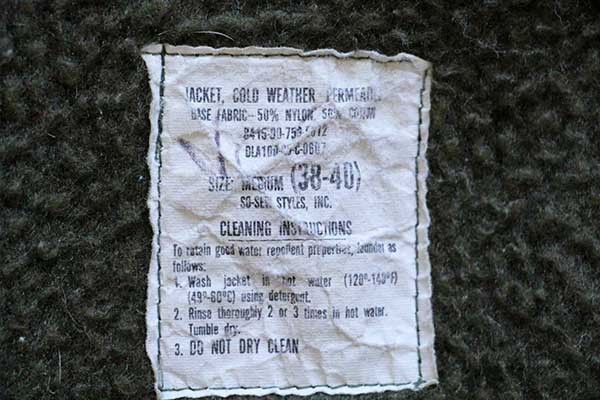 JACKET, COLD WEATHER PERMEABLE
BASE FABRIC-50% NYLON 50%
8415-00-
DLA100-
SIZE: MEDIUM (38-40)
SO-SEW STYLES, INC.
CLEANING INSTRUCTIONS
To retain good water repellent properties, launder as
follows:
1. Wash jacket in hot water (120°-140°F)
(49°-60°C) using detergent.
2. Rinse thoroughly 2 or 3 times in hot water.
Tumble dry.
3. DO NOT DRY CLEAN